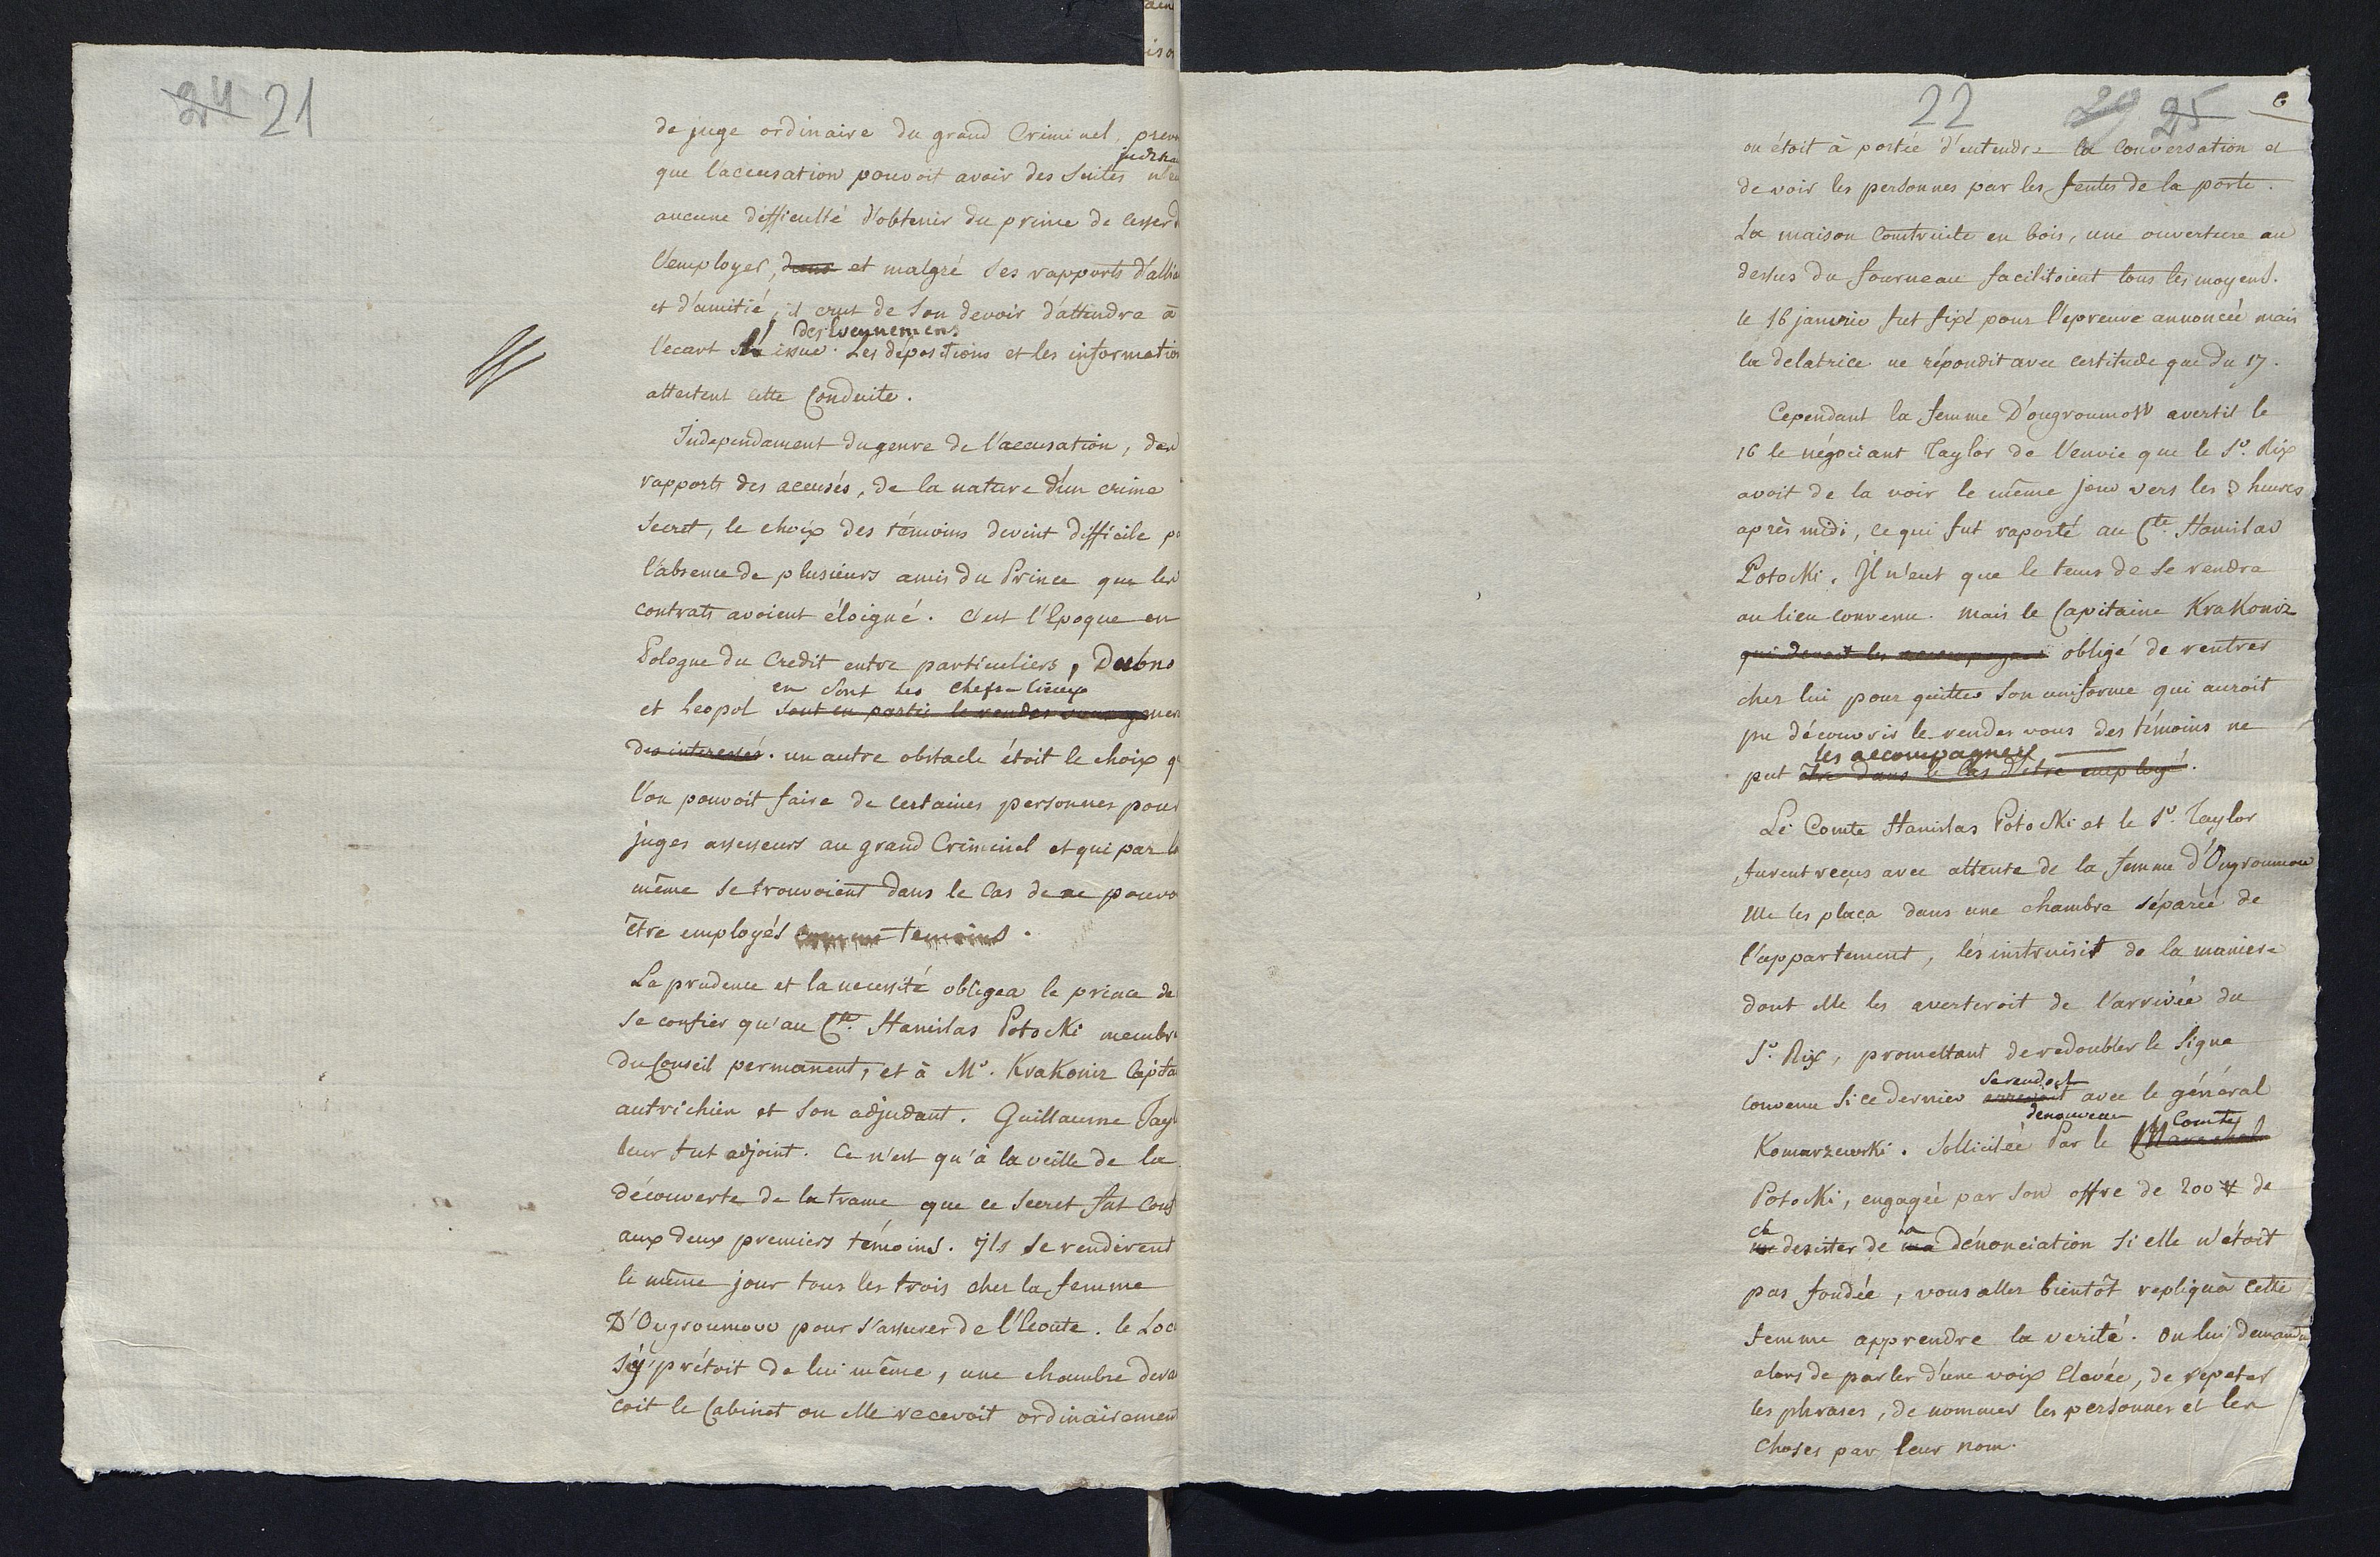 24 21
de juge ordinaire du grand Criminel, prev
que l'accusation pouvoit avoir des Suites
aucune difficulté d'obtenir du prince de cesser d
l'employer, dans et malgré ses rapports d'allia
et d'amitié, il crut de Son devoir d'attendre à
des Evennemens
l'ecart issue. Les dépositions et les informatio
attestent cette Conduite.
Independament du genre de l'accusation, des
rapports des accusés, de la nature d'un crime
Secret, le choix des témoins devint difficile p
l'absence de plusieurs amis du Prince que les
contrats avoient éloigné. c'est l'Epoque en
Pologne du Credit entre particuliers, Dubno
en sont les chefs-lieux
et Leopol sont en partie le rendes vous gener
des interessés. un autre obstacle étoit le choix q
l'on pouvoit faire de certaines personnes pour
juges assesseurs au grand Criminel et qui par la
même se trouvoient dans le Cas de ne pouvo
être employés comme temoins.
La prudence et la necessité obligea le prince de
se confier qu'au Cte. Stanislas Potocki membre
du Conseil permanent, et à Mr. Krakoniz Capita
autrichien et son adjudant. Guillaume Tayl
leur fut adjoint. Ce n'est qu'à la veille de la
découverte de la trame que ce Secret fut Conf
aux deux premiers témoins. Jls se rendirent
le même jour tous les trois chez la femme
D'Ougroumow pour s'assurer de l'Ecoute. le Loc
s'y prétoit de lui même, une chambre deva
çoit le Cabinet ou elle recevoit ordinairement
22 29 25 6
on étoit à portée d'entendre la Conversation et
de voir les personnes par les fentes de la porte.
La maison Construite en bois, une ouverture au
dessus du fourneau facilitoient tous les moyens.
le 16 janvier fut fixé pour l'epreuve annoncée mais
la delatrice ne répondit avec certitude que du 17.
Cependant la femme D'ougroumow avertit le
16 le négociant Taylor de l'envie que le Sr. Rix
avoit de la voir le même jour vers les 3 heures
après midi, ce qui fut raporté au Cte. Stanislas
Potocki. Jl n'eut que le tems de se rendre
au lieu convenu. mais le Capitaine Krakoniz
qui devoit les accompagner obligé de rentrer
chez lui pour quitter son uniforme qui auroit
pu découvrir le rendes vous des témoins ne
les accompagner
put être dans le Cas d'être employé.
Le Comte Stanislas Potocki et le Sr. Taylor
furent reçus avec attente de la femme d'Ougroumow
elle les plaça dans une chambre séparée de
l'appartement, les instruisit de la maniere
dont elle les averteroit de l'arrivée du
Sr. Rix, promettant de redoubler le Signe
se rendoit
convenu si ce dernier arrivoit avec le général
denouveau Comte
Komarzewski. Sollicitée Par le Marechal
Potocki, engagée par son offre de 200 # de
de sa
me desister de ma dénonciation si elle n'étoit
pas fondée, vous alles bientôt repliqua cette
femme apprendre la verité. on lui demanda
alors de parler d'une voix Elevée, de repeter
les phrases, de nommer les personnes et les
choses par leur nom.